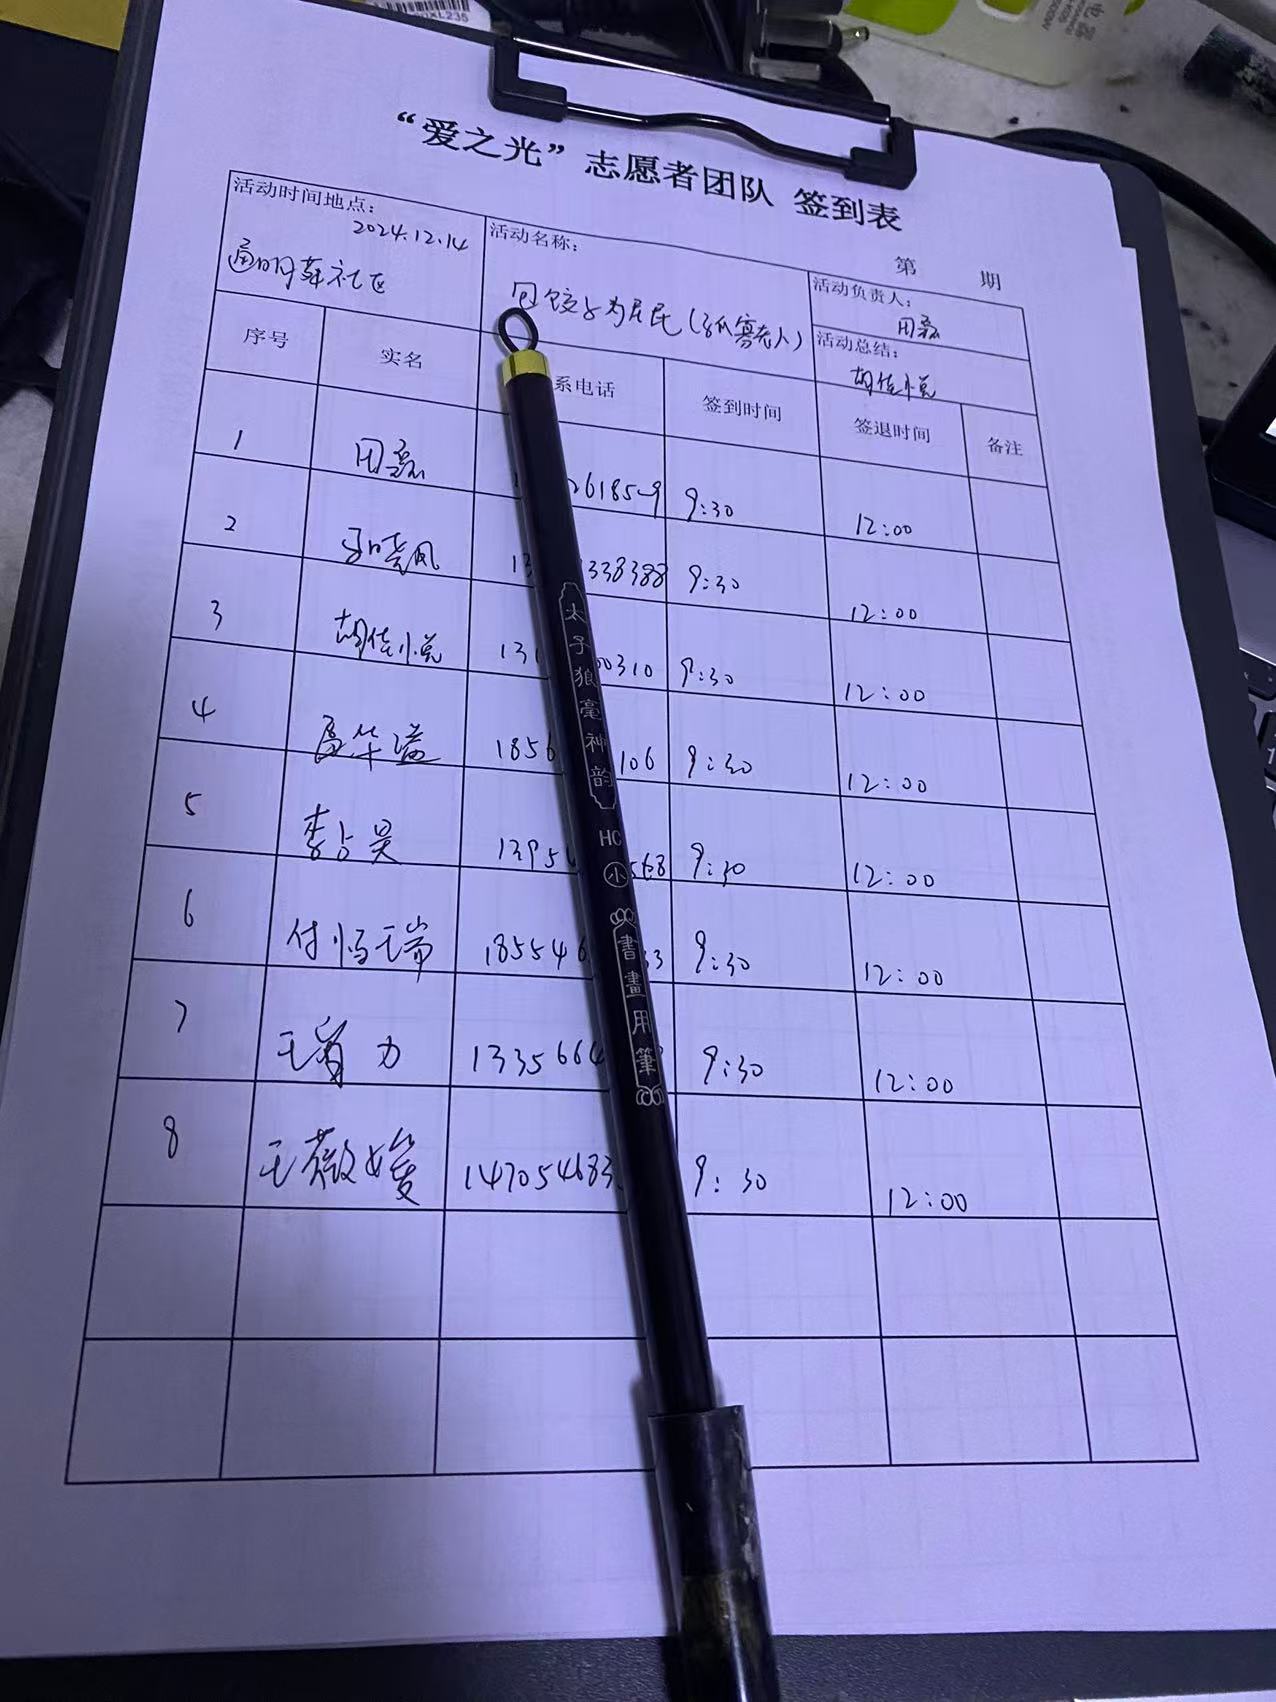 “爱之光”志愿者团队 签到表
第 期
活动时间地点：
2024.12.14
通明 社区
活动名称：
包饺子为居民（孤寡老人）
活动负责人：
田磊
活动总结：
胡佳悦
序号 实名 系电话 签到时间 签退时间 备注
1 田磊 26185 9 9:30 12:00
2 马晓凤 13 338388 9:30 12:00
3 胡佳悦 131 00310 9:30 12:00
4 华 1856 106 9:30 12:00
5 李占昊 1395 568 9:30 12:00
6 付 瑞 185546 33 9:30 12:00
7 王 力 1335664 9:30 12:00
8 王薇 147054683 9:30 12:00
太子狼毫神韵
HC
小
書畫用筆